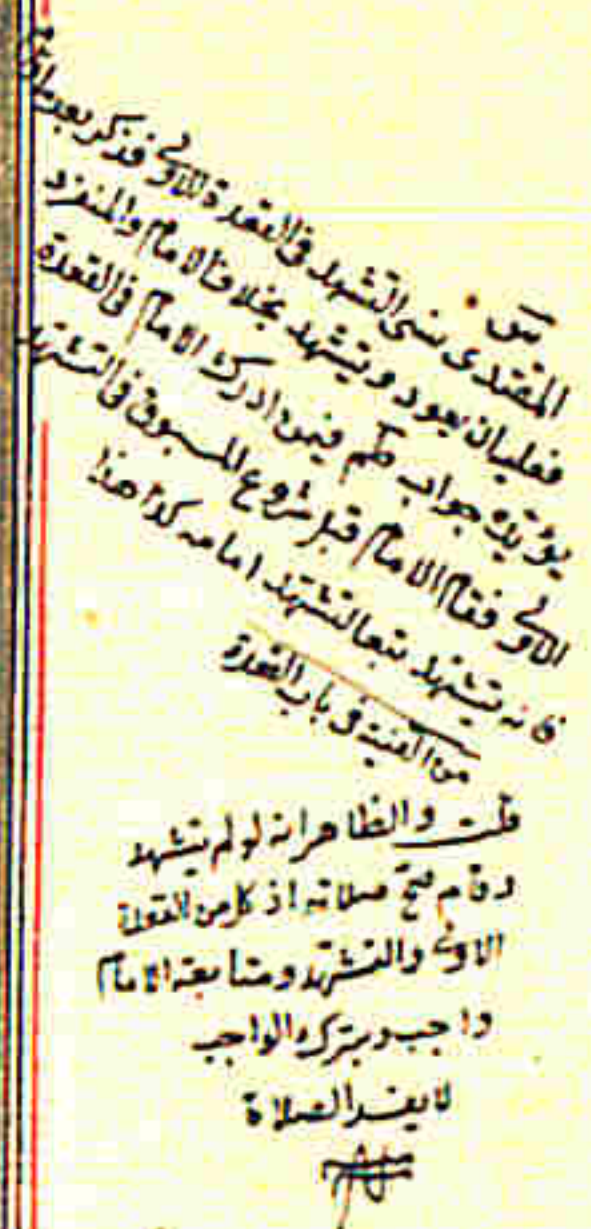 المقتدى نسى التشهد فى القعدة الاولى فذكر بعد ما قام
فعليه ان يعود ويتشهد بخلاف الامام والمنفرد
يؤيده جواب ظم فيمن ادرك الامام فى القعدة
الاولى فقام الامام قبل شروع المسبوق فى التشهد
فانه يتشهد تبعا لتشهد امامه فكذا هذا
من القنية فى باب القعدة
قلت والظاهر انه لو لم يتشهد
وقام صح صلاته اذ كل من القعدة
الاولى والتشهد ومتابعة الامام
واجب وبترك الواجب
لا يفسد الصلاة